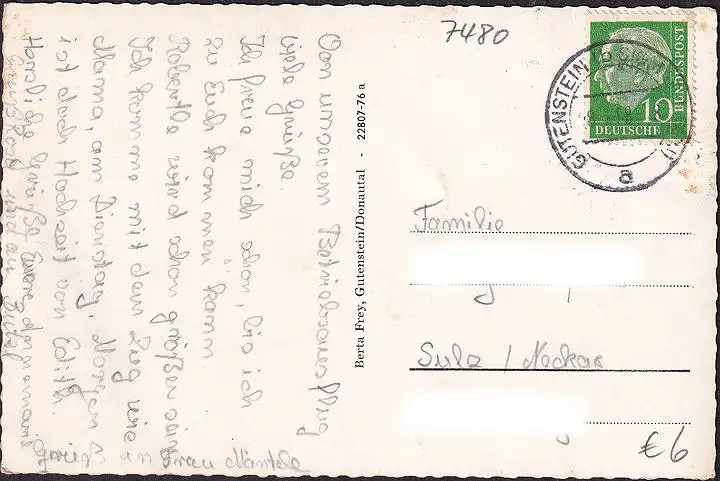 7480
Von unserem Betriebsausflug
viele Grüße.
Ich freue mich schon, bis ich
zu Euch kommen kann.
Robertle wird schon größer sein
Ich komme mit dem Zug wie
Mama, am Dienstag. Morgen
ist doch Hochzeit von Edith.
Herzliche Grüße Eure Annemarie
Frau
Berta Frey, Gutenstein/Donautal - 22807-76 a
GUTENSTEIN
a
10
DEUTSCHE
BUNDESPOST
Familie
Sulz / Neckar
€6